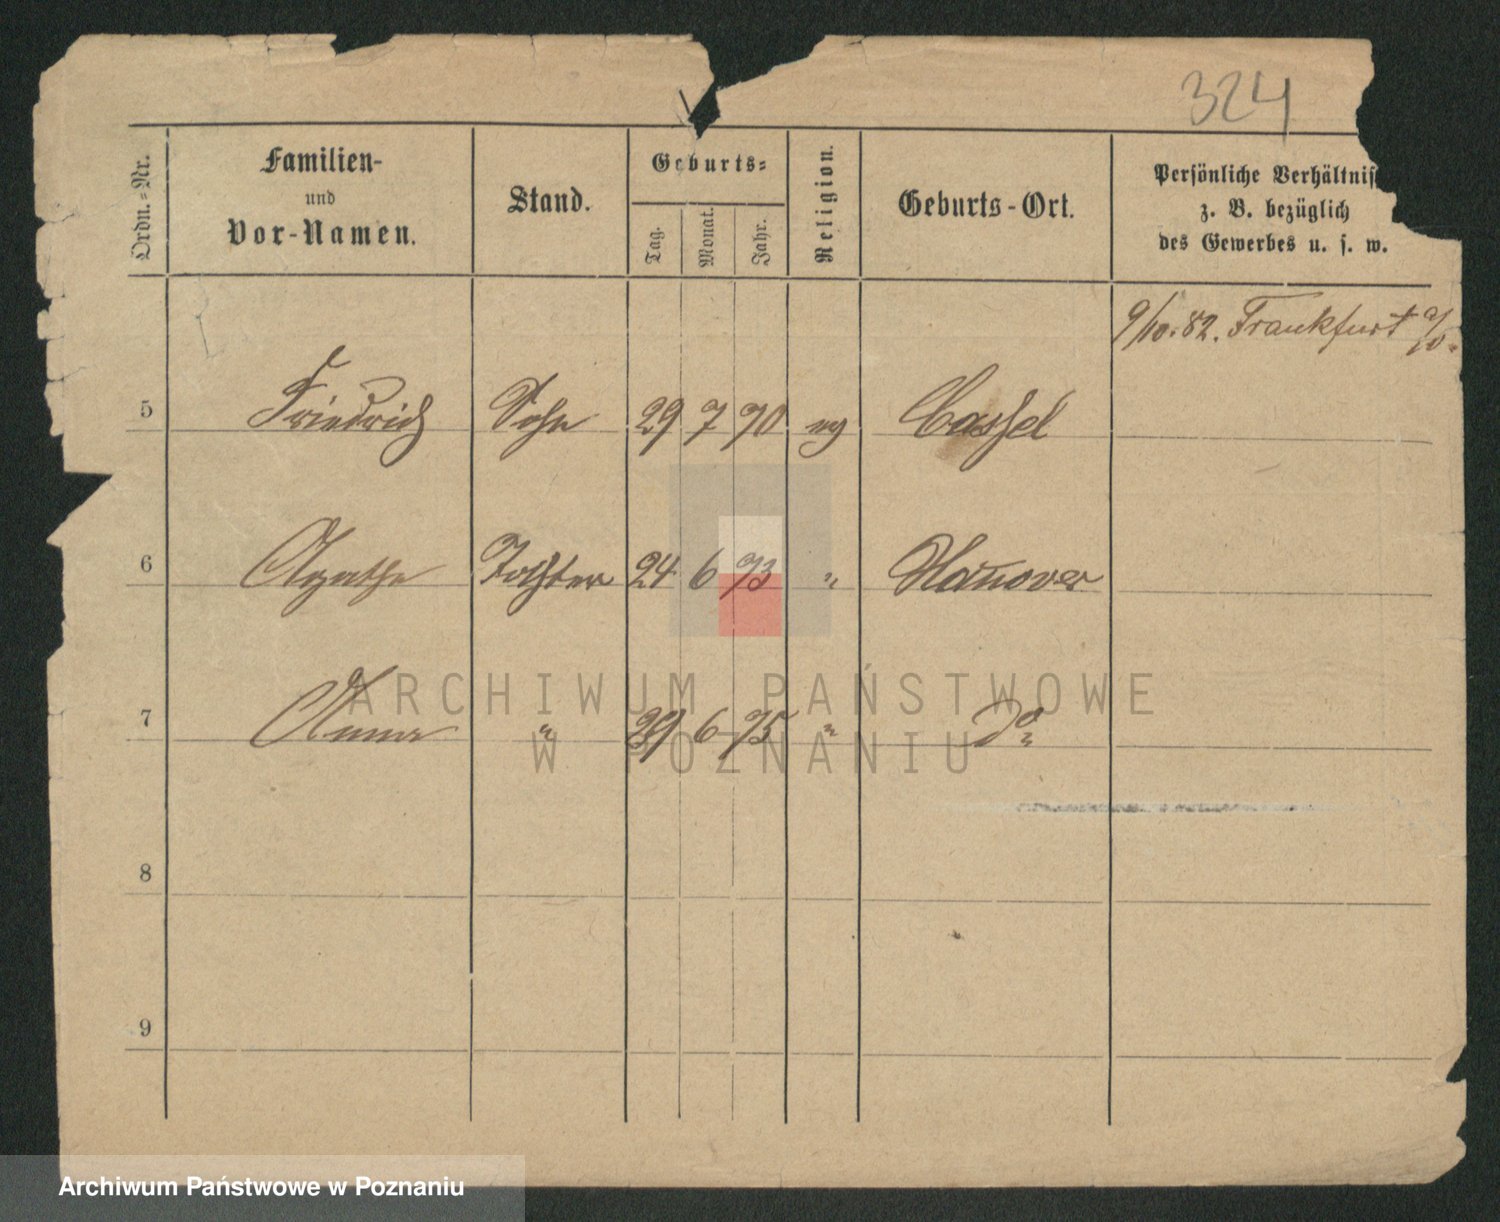 324
Ordn.-Nr. Familien- und Vor-Namen. Stand. Geburts- Tag. Monat. Jahr. Religion. Geburts-Ort. Persönliche Verhältnis z. B. bezüglich des Gewerbes u. s. w.
9/10.82. Frankfurt a/O.
5 Friedrich Sohn 29 7 70 ev Cassel
6 Agathe Tochter 24 6 73 " Hanover
7 Anna " 29 6 75 " do
8
9
ARCHIWUM PAŃSTWOWE
W POZNANIU
Archiwum Państwowe w Poznaniu